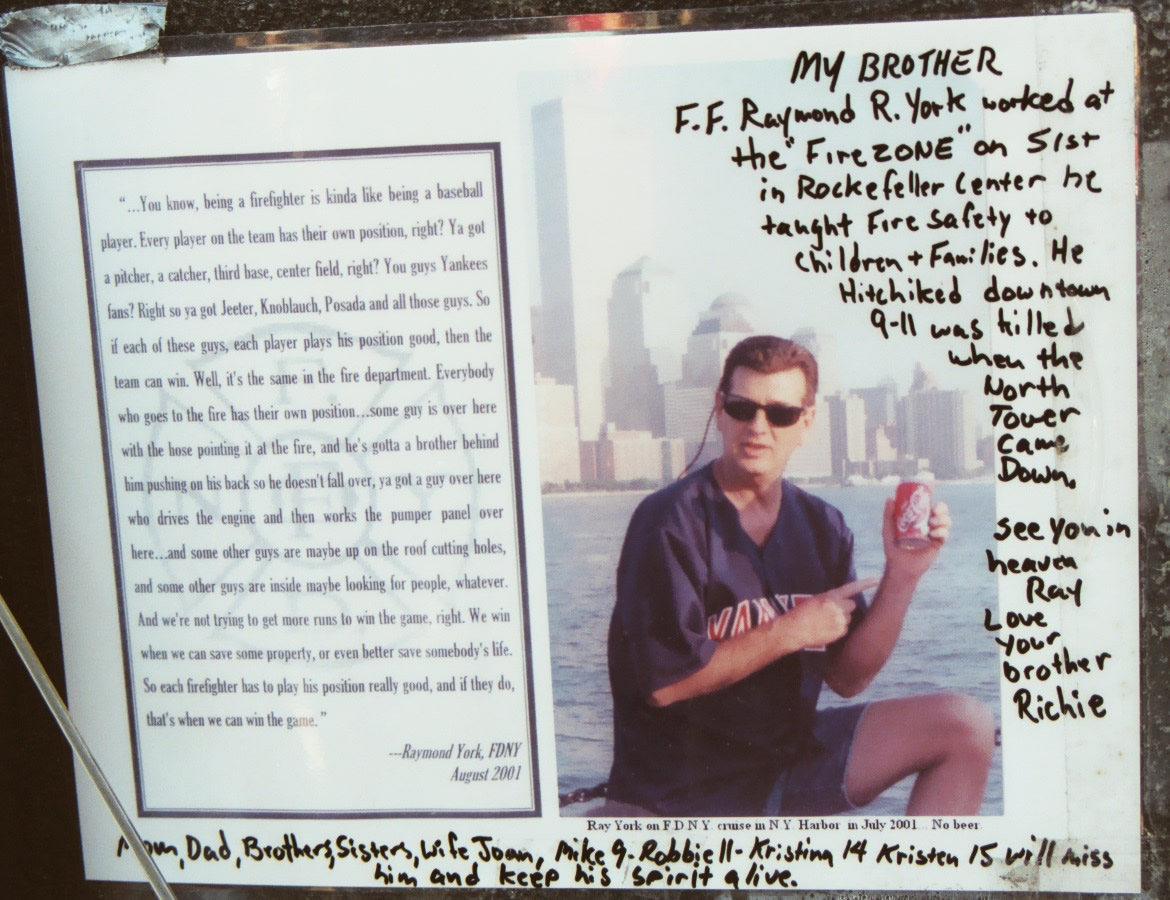 MY BROTHER
F.F. Raymond R. York worked at
the "Fire ZONE" on 51st
in Rockefeller Center he
taught Fire safety to
children + Families. He
Hitchiked downtown
9-11 was killed
when the
North
Tower
Came
Down.
See You in
heaven
Ray
Love
your
brother
Richie
"...You know, being a firefighter is kinda like being a baseball
player. Every player on the team has their own position, right? Ya got
a pitcher, a catcher, third base, center field, right? You guys Yankees
fans? Right so ya got Jeeter, Knoblauch, Posada and all those guys. So
if each of these guys, each player plays his position good, then the
team can win. Well, it's the same in the fire department. Everybody
who goes to the fire has their own position...some guy is over here
with the hose pointing it at the fire, and he's gotta a brother behind
him pushing on his back so he doesn't fall over, ya got a guy over here
who drives the engine and then works the pumper panel over
here...and some other guys are maybe up on the roof cutting holes,
and some other guys are inside maybe looking for people, whatever.
And we're not trying to get more runs to win the game, right. We win
when we can save some property, or even better save somebody's life.
So each firefighter has to play his position really good, and if they do,
that's when we can win the game."
---Raymond York, FDNY
August 2001
Ray York on F.D.N.Y. cruise in N.Y. Harbor in July 2001... No beer.
Mom, Dad, Brothers, Sisters, Wife Joan, Mike 9- Robbie 11- Kristina 14 Kristen 15 will miss
him and keep his spirit alive.